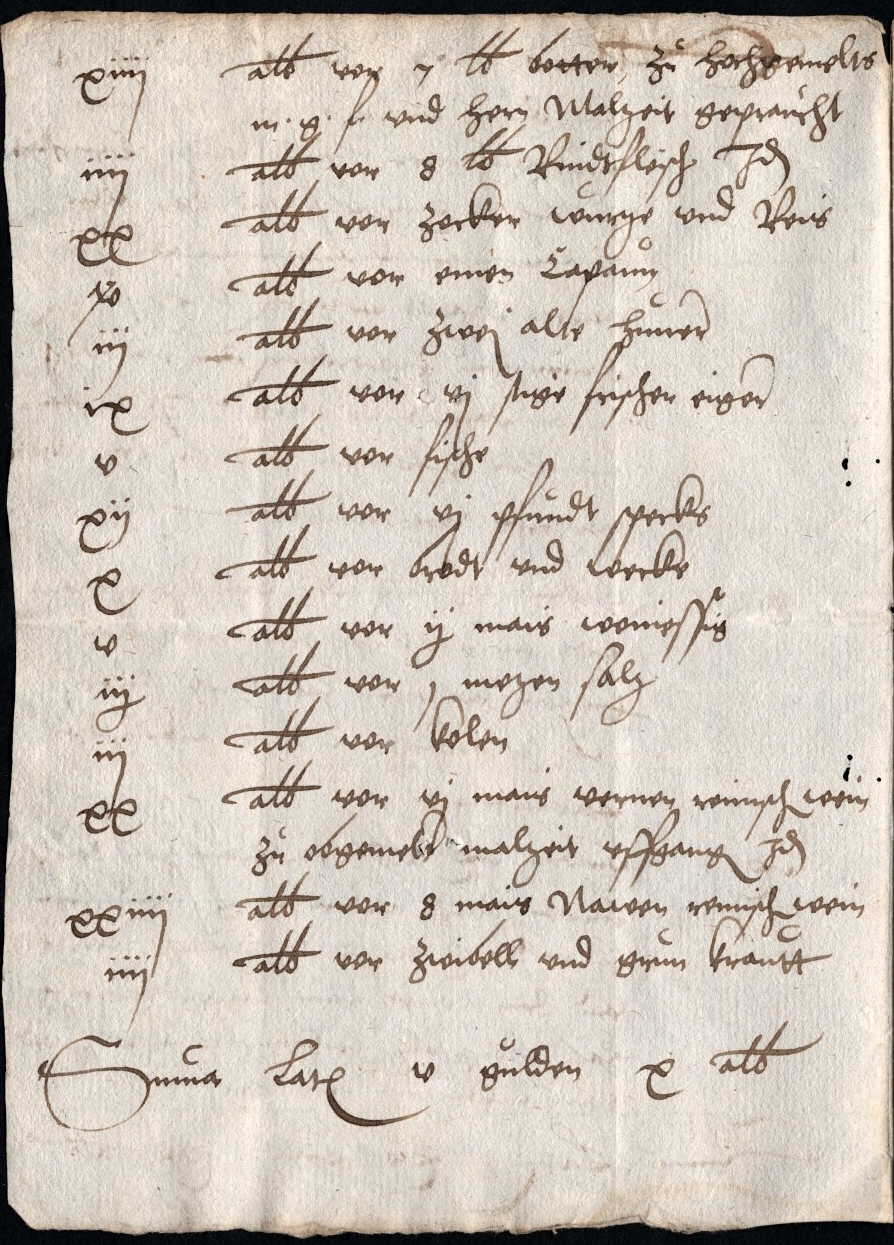 xiiij alb vor 7 lb botter, zu hochgemelts
m. g. f. vnd hern Malzeit gepraucht
iiij alb vor 8 lb Rindtfleisch
xx alb vor zocker wurtze vnd Reis
alb vor einen Capaun
iij alb vor zwej alte huner
ix alb vor vj stige frischer eiger
v alb vor fische
xij alb vor vj pfundt specks
x alb vor brodt vnd wecke
v alb vor ij mais weinessig
iij alb vor j metzen saltz
iij alb vor kolen
xx alb vor vj mais vernen reinisch wein
zu obgemelt malzeit vffgang
xxiiij alb vor 8 mais Nawen reinisch wein
iiij alb vor zwibell vnd grun krautt
Summa Lat v gulden x alb